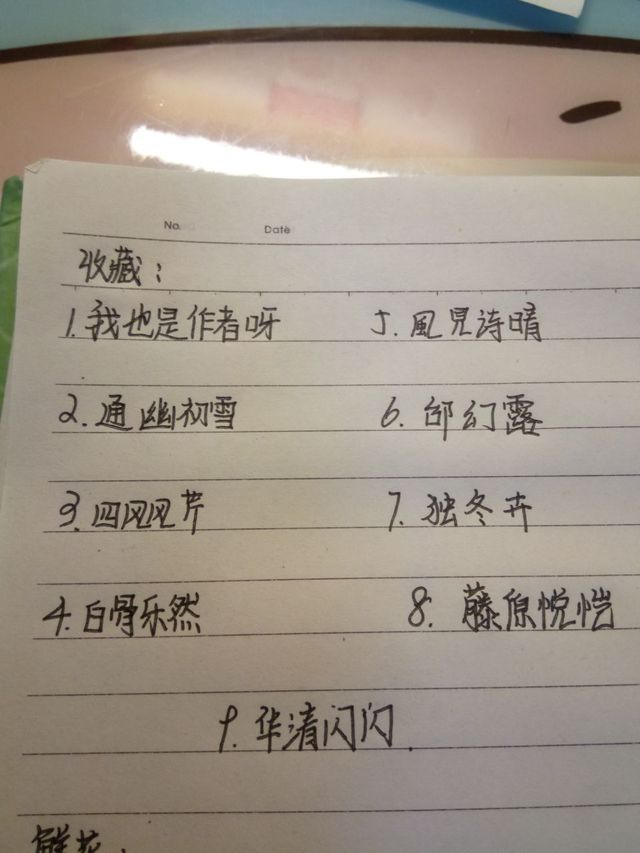 No. Date
收藏：
1.我也是作者呀 5.風見诗晴
2.通幽初雪 6.邰幻露
3.四风风芹 7.独冬卉
4.白骨乐然 8.藤原悦恺
9.华清闪闪.
鲜花：